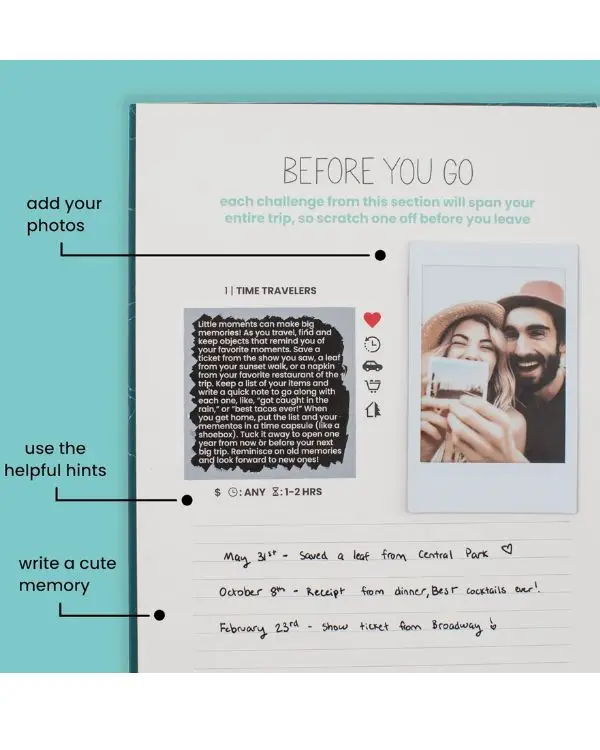 BEFORE YOU GO
each challenge from this section will span your
entire trip, so scratch one off before you leave
add your
photos
1 | TIME TRAVELERS
Little moments can make big
memories! As you travel, find and
keep objects that remind you of
your favorite moments. Save a
ticket from the show you saw, a leaf
from your sunset walk, or a napkin
from your favorite restaurant of the
trip. Keep a list of your items and
write a quick note to go along with
each one, like, "got caught in the
rain," or "best tacos ever!" When
you get home, put the list and your
mementos in a time capsule (like a
shoebox). Tuck it away to open one
year from now or before your next
big trip. Reminisce on old memories
and look forward to new ones!
use the
helpful hints
$ : ANY : 1-2 HRS
write a cute
memory
May 31st - Saved a leaf from Central Park
October 8th - Receipt from dinner, Best cocktails ever!
February 23rd - Show ticket from Broadway